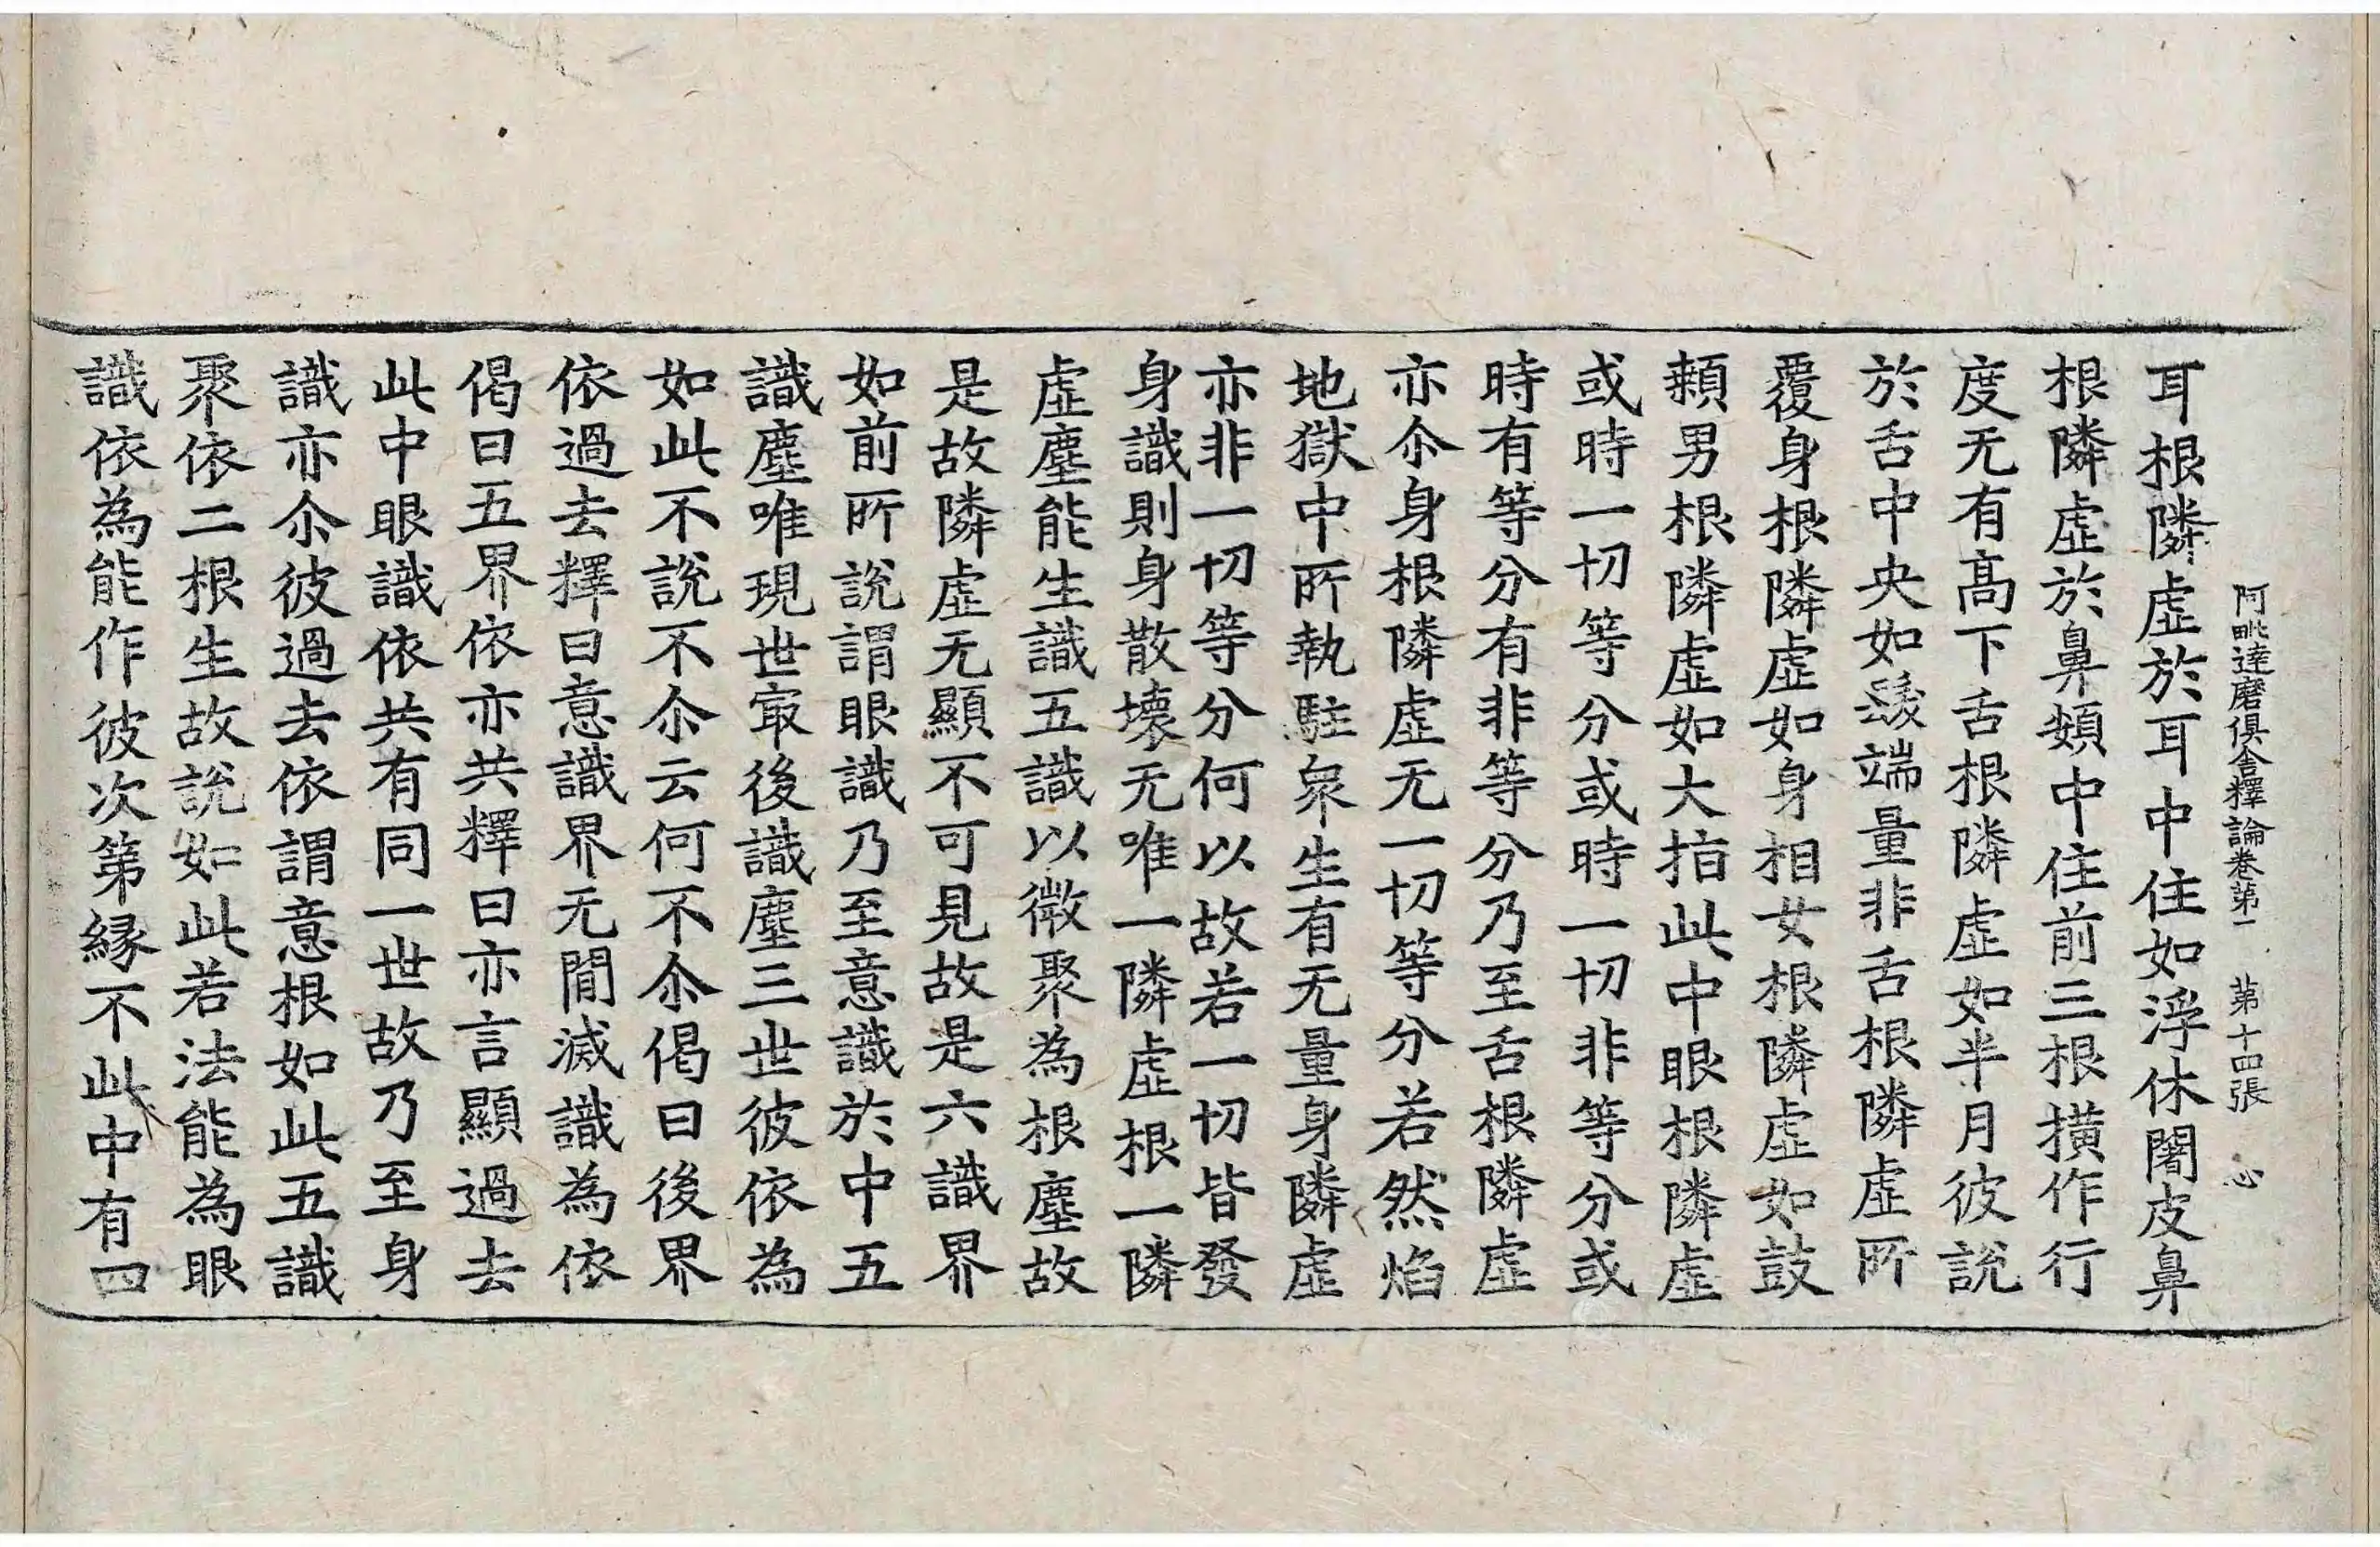 阿毗達磨俱舍釋論卷第一　第十四張　心
耳根隣虛於耳中住如浮休闍皮鼻
根隣虛於鼻頞中住前三根撗作行
度无有髙下舌根隣虛如半月彼說
於舌中央如髮端量非舌根隣虛所
覆身根隣虛如身相女根隣虛如鼓
顙男根隣虛如大指此中眼根隣虛
或時一切等分或時一切非等分或
時有等分有非等分乃至舌根隣虛
亦尒身根隣虛无一切等分若然焰
地獄中所執駐衆生有无量身隣虛
亦非一切等分何以故若一切皆發
身識則身散壞无唯一隣虛根一隣
虛塵能生識五識以微聚為根塵故
是故隣虛无顯不可見故是六識界
如前所說謂眼識乃至意識於中五
識塵唯現世㝡後識塵三世彼依為
如此不說不尒云何不尒偈曰後界
依過去釋曰意識界无閒滅識為依
偈曰五界依亦共釋曰亦言顯過去
此中眼識依共有同一世故乃至身
識亦尒彼過去依謂意根如此五識
聚依二根生故說如此若法能為眼
識依為能作彼次第緣不此中有四